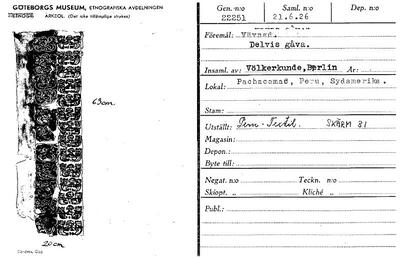 GÖTEBORGS MUSEUM, ETNOGRAFISKA AVDELNINGEN
ARKEOL. (Det icke tillämpliga strykes)
63cm.
20 cm.
Gen. n:o
22251
Saml. n:o
21.6.26
Dep. n:o
Föremål: Vävnad.
Delvis gåva.
Insaml. av: Völkerkunde, Berlin År:
Lokal: Pachacamac, Peru, Sydamerika.
Stam:
Utställt: Peru-Textil. SKÄRM 81
Magasin:
Depon.:
Byte till:
Negat. n:o Teckn. n:o
Skiopt. „ Kliché „
Publ.: